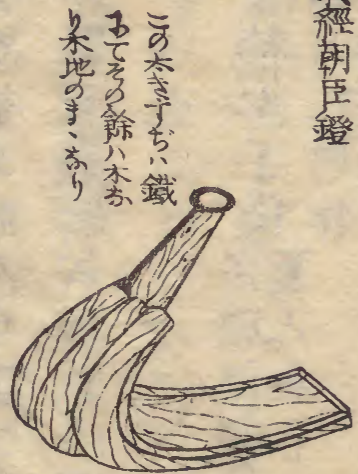 經朝臣鐙
この太きすぢハ鐵
にてその餘ハ木な
り木地のまゝなり